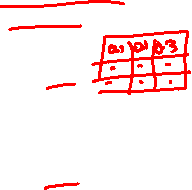 0.1 01 0.3
- - -
- - -